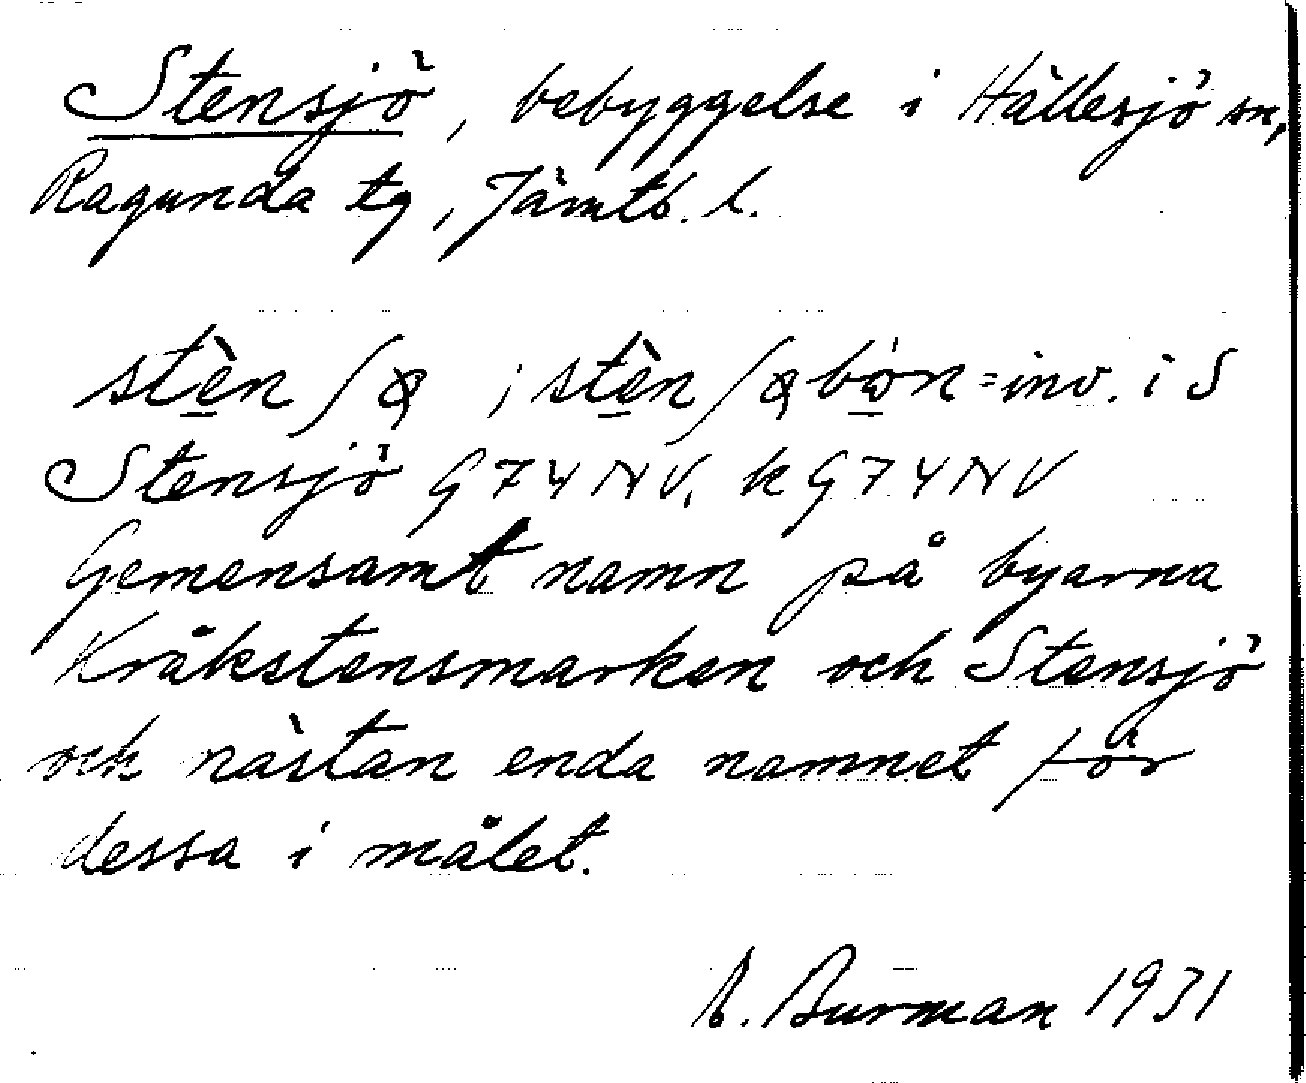 Stensjö, bebyggelse i Hällesjö sn,
Ragunda tg, Jämtl. l.
stèn ; stèn bòn = inv. i S
Stensjö G74NV. k G74NV
Gemensamt namn på byarna
Kråkstensmarken och Stensjö
och nästan enda namnet för
dessa i målet.
A. Burman 1931